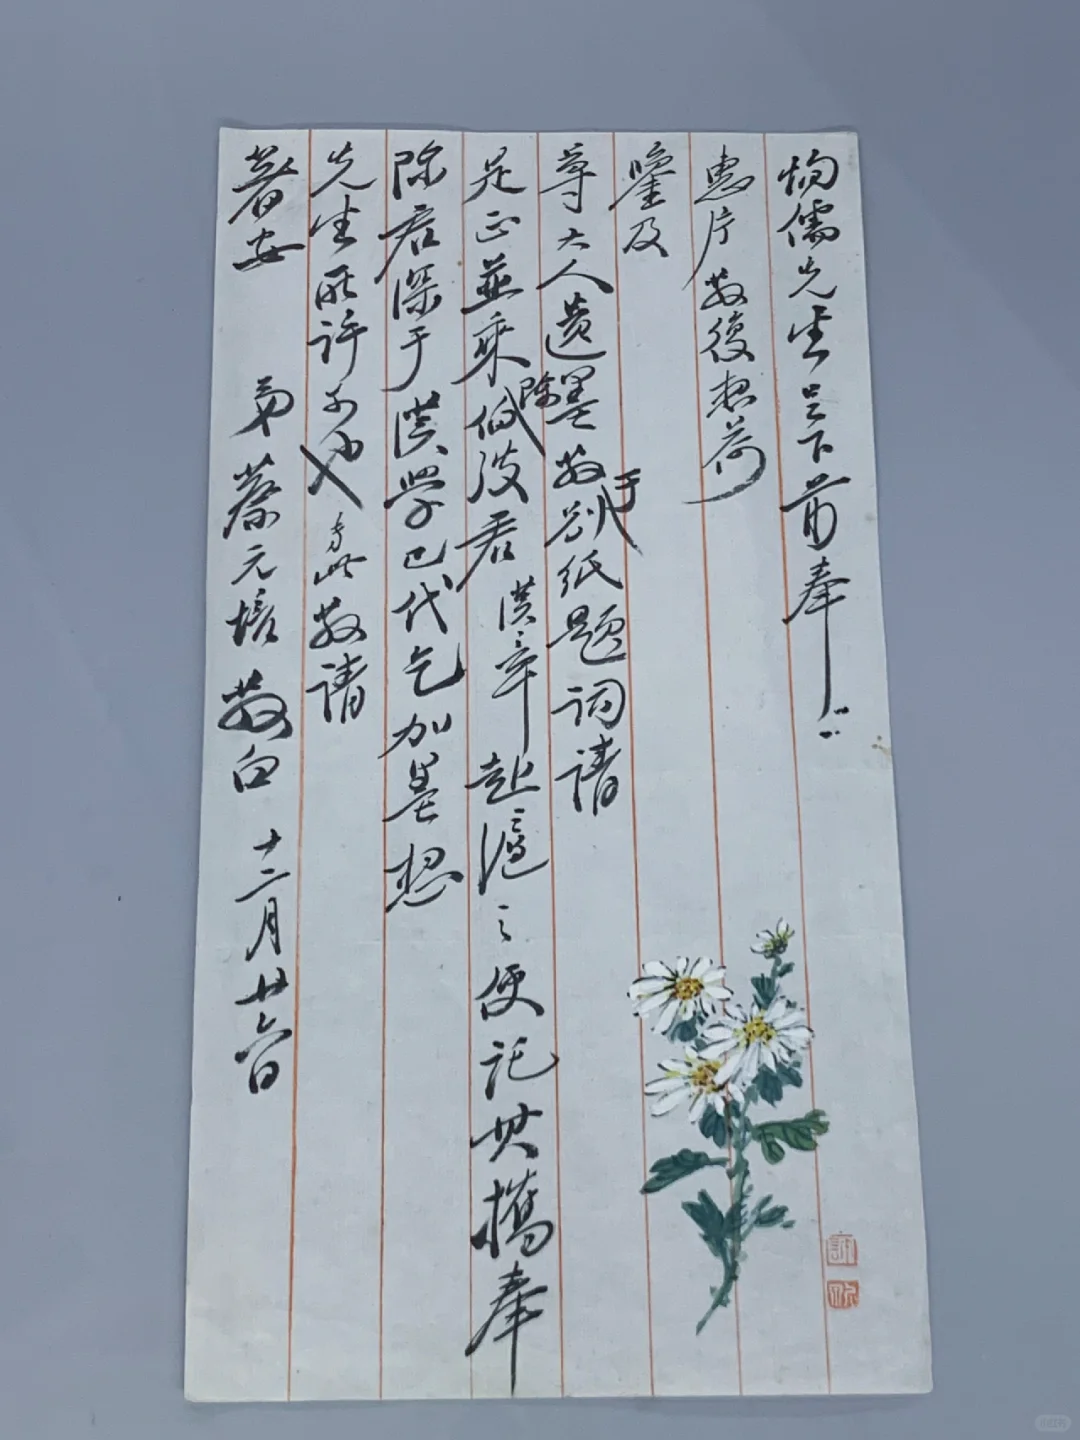 恂儒先生足下前奉
惠片敬復想荷
鑒及
尊大人遺墨敬于別紙題詞請
足正並乘陳伯君漢章赴滬之便託其攜奉
陳君深于漢學已代乞加墨想
先生所許可也專此敬請
著安
弟蔡元培敬白 十二月廿六日